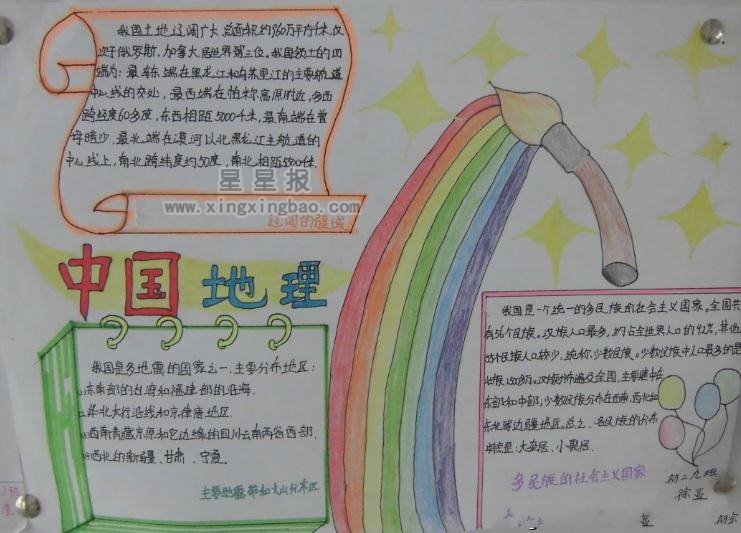 我国土地辽阔广大,总面积约960万平方千米,仅
次于俄罗斯、加拿大,居世界第三位。我国领土的四
端为:最东端在黑龙江和乌苏里江的主要航道
中心线的交处,最西端在帕米高原附近,东西
跨经度60多度,东西相距5000千米,最南端在曾
母暗沙,最北端在漠河以北黑龙江主航道的
中心线上,南北跨纬度约50度,南北相距5500千米.
星星报
www.xingxingbao.com
辽阔的疆域
中国地理
我国是多地震的国家之一.主要分布地区:
东南部的台湾和福建部的沿海.
华北太行沿线和京津唐地区.
西南青藏高原和它边缘的四川云南两省西部.
西北的新疆、甘肃、宁夏。
主要地震带和火山分布区
我国是一个统一的多民族的社会主义国家。全国共
有56个民族。汉族人口最多,约占全世界人口的92%,其他
55个民族人口较少,统称少数民族。少数民族中人口最多的是
壮族1500多万。汉族的遍及全国,主要集中在
东部和中部,少数民族分布在西南、西北和
东北等边疆地区。总之,各民族的分布
特点是:大杂居、小聚居.
多民族的社会主义国家
初二九班
徐亚